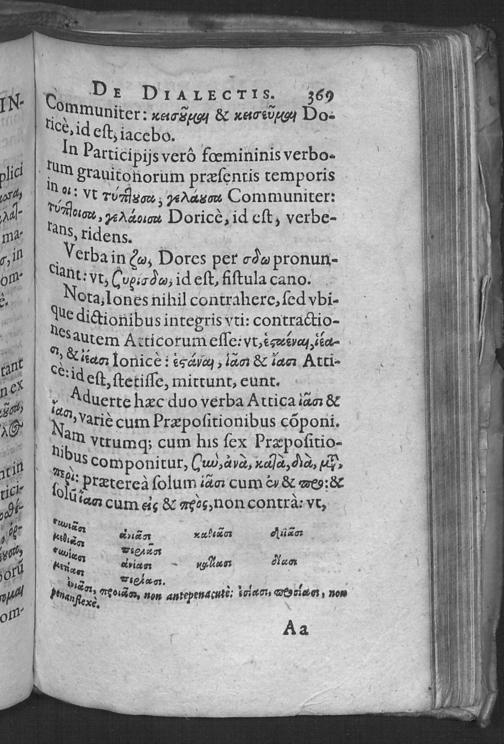 DE DIALECTIS. 369
Communiter: κεισοῦμαι & κεισεῦμαι Do-
ricè, id est, iacebo.
In Participijs verò fœmininis verbo-
rum grauitonorum præsentis temporis
in οι: vt τύπτουσα, γελάουσα Communiter:
τύπτοισα, γελάοισα Doricè, id est, verbe-
rans, ridens.
Verba in ζω, Dores per σδω pronun-
ciant: vt, συρίσδω, id est, fistula cano.
Nota, Iones nihil contrahere, sed vbi-
que dictionibus integris vti: contractio-
nes autem Atticorum esse: vt, ἑστάέναι, ἱέα-
σι, & ἰέασι Ionicè: ἑστάναι, ἱᾶσι & ἴασι Atti-
cè: id est, stetisse, mittunt, eunt.
Aduerte hæc duo verba Attica ἱᾶσι &
ἴασι, variè cum Præpositionibus cōponi.
Nam vtrumq; cum his sex Præpositio-
nibus componitur, ζωὺ, ἀνὰ, κατὰ, διὰ, μετὰ,
περὶ: præterea solum ἱᾶσι cum ἐν & προ: &
solū ἴασι cum εἰς & πρὸς, non contrà: vt,
σωιᾶσι ἀνιᾶσι καθιᾶσι διιᾶσι
μεθιᾶσι περιιᾶσι
σωίασι ἀνίασι κατίασι δίασι
μετίασι περιίασι.
ἐνιᾶσι, προιᾶσι, non antepenacutè: εἰσίασι, προσίασι, non
penansflexè.
Aa